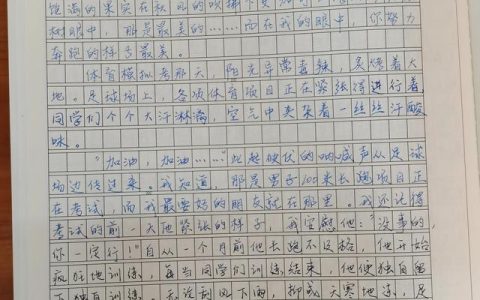 饱满的果实在秋风的吹拂下
树眼中，那是最美的……而在我的眼中，你努力
奔跑的样子最美。
体育模拟考那天，阳光异常毒辣，炙烤着大
地。足球场上，各项体育项目正在紧张得进行着，
同学们个个大汗淋漓，空气中夹杂着一丝丝汗酸
味。
“加油，加油……”此起彼伏的呐喊声从足球
场边传过来。我知道，那是男子1000米长跑项目正
在考试，而我最要好的朋友就在那里。我还记得
考试的前一天他紧张的样子，我安慰他：“没事的，
你一定行！”自从一个月前他长跑不及格，他开始
疯狂地训练，每当同学们训练结束，他便独自留
下独自训练。无论刮风下雨，抑或天寒地冻，足